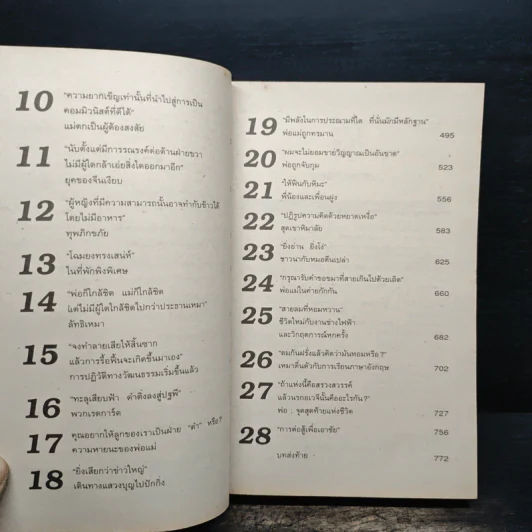 10
"ความยากเข็ญเท่านั้นที่นำไปสู่การเป็น
คอมมิวนิสต์ที่ดีได้"
แม่ตกเป็นผู้ต้องสงสัย
11
"นับตั้งแต่มีการรณรงค์ต่อต้านฝ่ายขวา
ไม่มีผู้ใดกล้าเอ่ยสิ่งใดออกมาอีก"
ยุคของจีนเงียบ
12
"ผู้หญิงที่มีความสามารถนั้นอาจทำกับข้าวได้
โดยไม่มีอาหาร"
ทุพภิกขภัย
13
"โฉมยงทรงเสน่ห์"
ในที่พักพิงพิเศษ
14
"พ่อก็ใกล้ชิด แม่ก็ใกล้ชิด
แต่ไม่มีผู้ใดใกล้ชิดไปกว่าประธานเหมา"
ลัทธิเหมา
15
"จงทำลายเสียให้สิ้นซาก
แล้วการรื้อฟื้นจะเกิดขึ้นมาเอง"
การปฏิวัติทางวัฒนธรรมเริ่มขึ้นแล้ว
16
"ทะลุเสียบฟ้า ดำดิ่งลงสู่ปฐพี"
พวกเรดการ์ด
17
คุณอยากให้ลูกของเราเป็นฝ่าย "ดำ" หรือ?
ความหายนะของพ่อแม่
18
"ยิ่งเสียกว่าข่าวใหญ่"
เดินทางแสวงบุญไปปักกิ่ง
19
"มีพลังในการประณามที่ใด ที่นั่นมักมีหลักฐาน"
พ่อแม่ถูกทรมาน 495
20
"ผมจะไม่ยอมขายวิญญาณเป็นอันขาด"
พ่อถูกจับกุม 523
21
"ให้ฟืนกับหิมะ"
พี่น้องและเพื่อนฝูง 556
22
"ปฏิรูปความคิดด้วยหยาดเหงื่อ"
สุดเขาหิมาลัย 583
23
"ยิ่งอ่าน ยิ่งโง่"
ชาวนากับหมอตีนเปล่า 625
24
"กรุณารับคำขอขมาที่สายเกินไปด้วยเถิด"
พ่อแม่ในค่ายกักกัน 660
25
"สายลมที่หอมหวาน"
ชีวิตใหม่กับงานช่างไฟฟ้า
และวิกฤตการณ์หกครั้ง 682
26
"ดมก้นฝรั่งแล้วคิดว่ามันหอมหรือ?"
เหมาตื่นตัวกับการเรียนภาษาอังกฤษ 702
27
"ถ้าแห่งนี้คือสรวงสวรรค์
แล้วนรกอเวจีนั้นคืออะไรกัน?"
พ่อ : จุดสุดท้ายแห่งชีวิต 727
28
"การต่อสู้เพื่อเอาชัย" 756
บทส่งท้าย 772